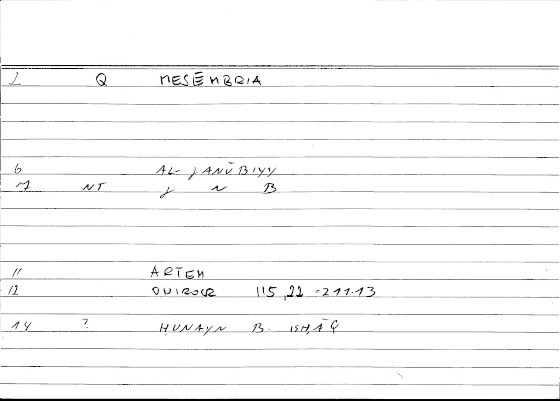 1 Q MESĒMBRIA
6 AL-JANŪBIYY
7 NT J N B
11 ARTEM
12 ONIROCR 115,22 = 211.13
14 ? ḤUNAYN B. ISḤĀQ